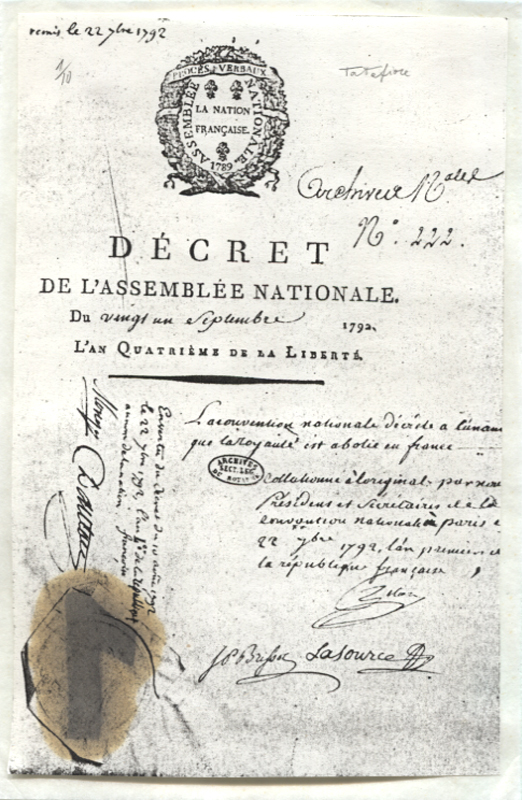 remis le 22 7bre 1792
1/10
PROCÈS VERBAUX
ASSEMBLÉE NATIONALE.
LA NATION
FRANÇAISE.
1789
Archives Nales
N°. 222.
DÉCRET
DE L'ASSEMBLÉE NATIONALE.
Du vingt un Septembre 1792.
L'AN QUATRIÈME DE LA LIBERTÉ.
La convention nationale décrète a l'unan
que la royauté est abolie en france
ARCHIVES
SECT. LEG.
Collationné à l'original par nous
Président et Secretaires de la
convention nationale a paris le
22 7bre 1792, l'an premier de
la république française
J P Brissot Lasource
En vertu du décret du 10 août 1792
le 22 7bre 1792, l'an 1er de la république
au nom de la nation
Monge
Danton